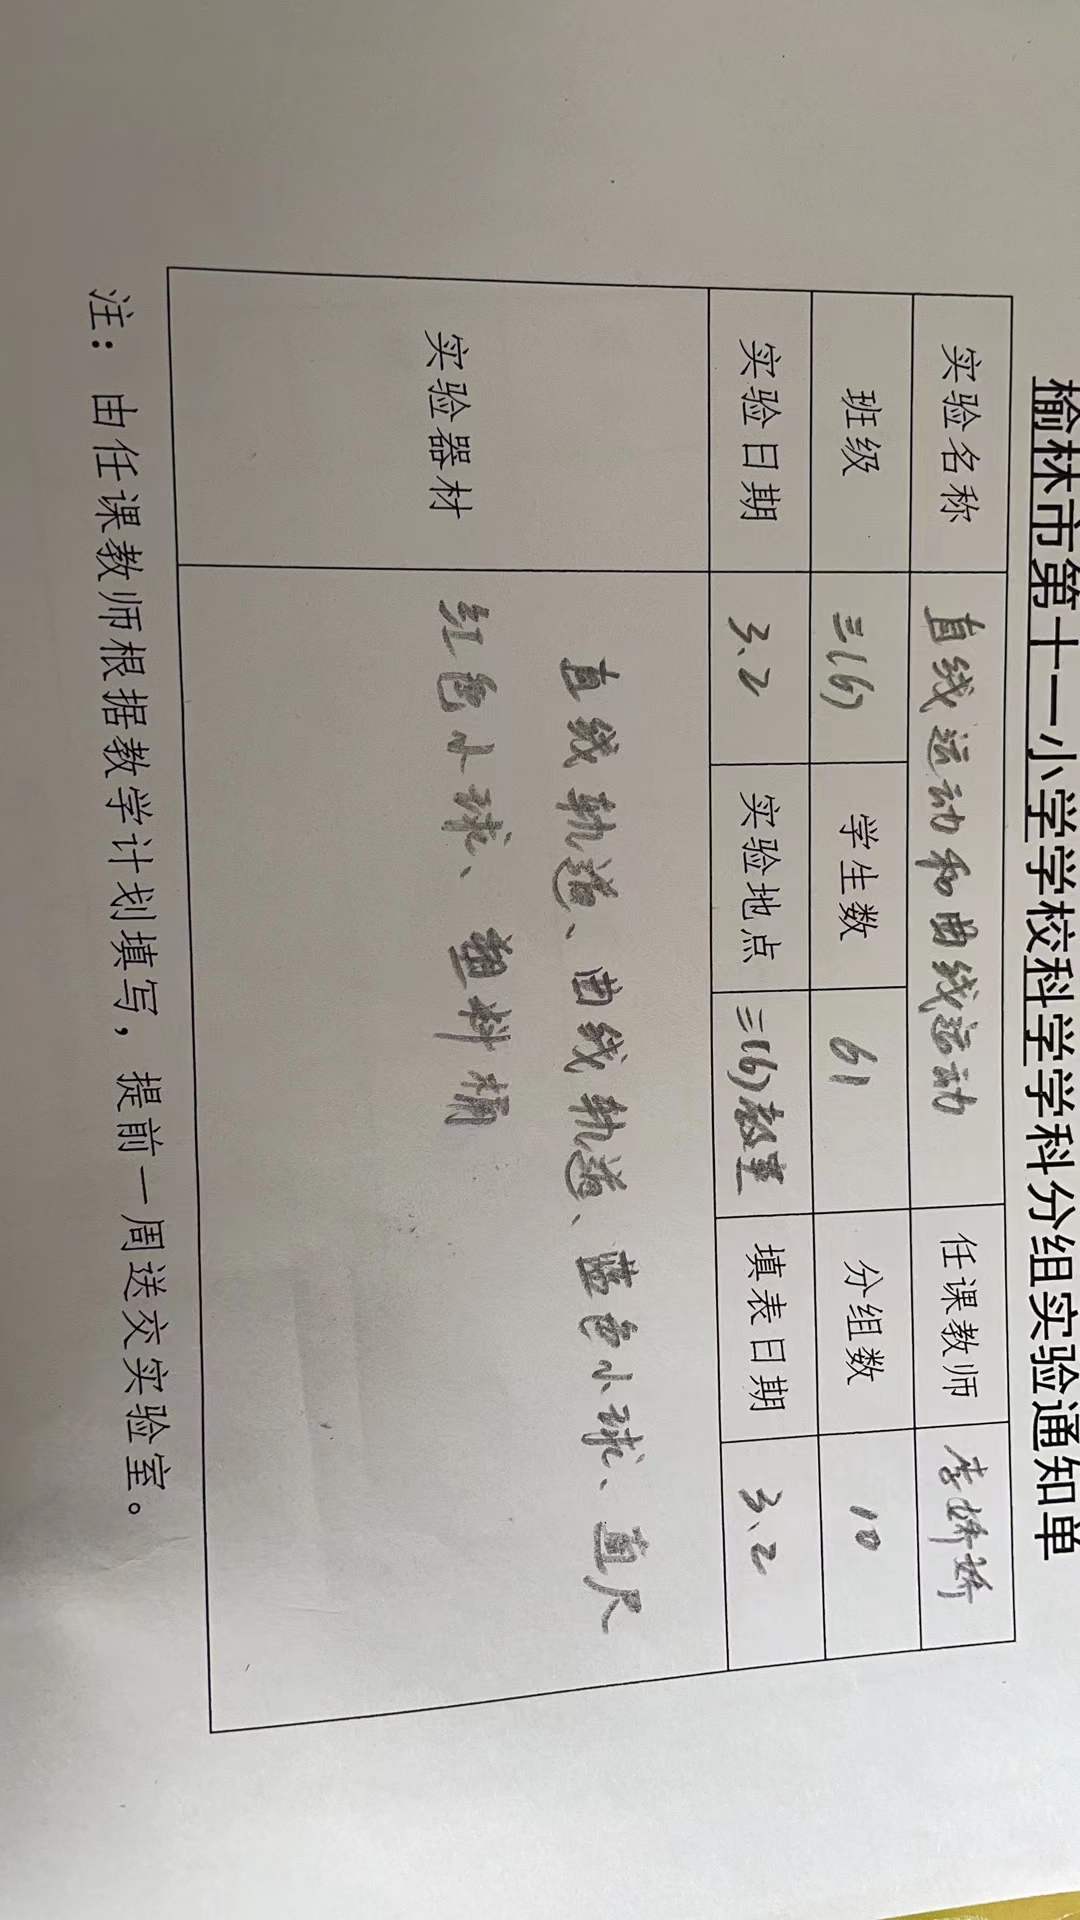 榆林市第十一小学学校科学学科分组实验通知单
实验名称 直线运动和曲线运动 任课教师 李娇娇
班级 三(6) 学生数 61 分组数 10
实验日期 3.2 实验地点 三(6)教室 填表日期 3.2
实验器材 直线轨道、曲线轨道、蓝色小球、直尺
红色小球、塑料桶
注：由任课教师根据教学计划填写，提前一周送交实验室。